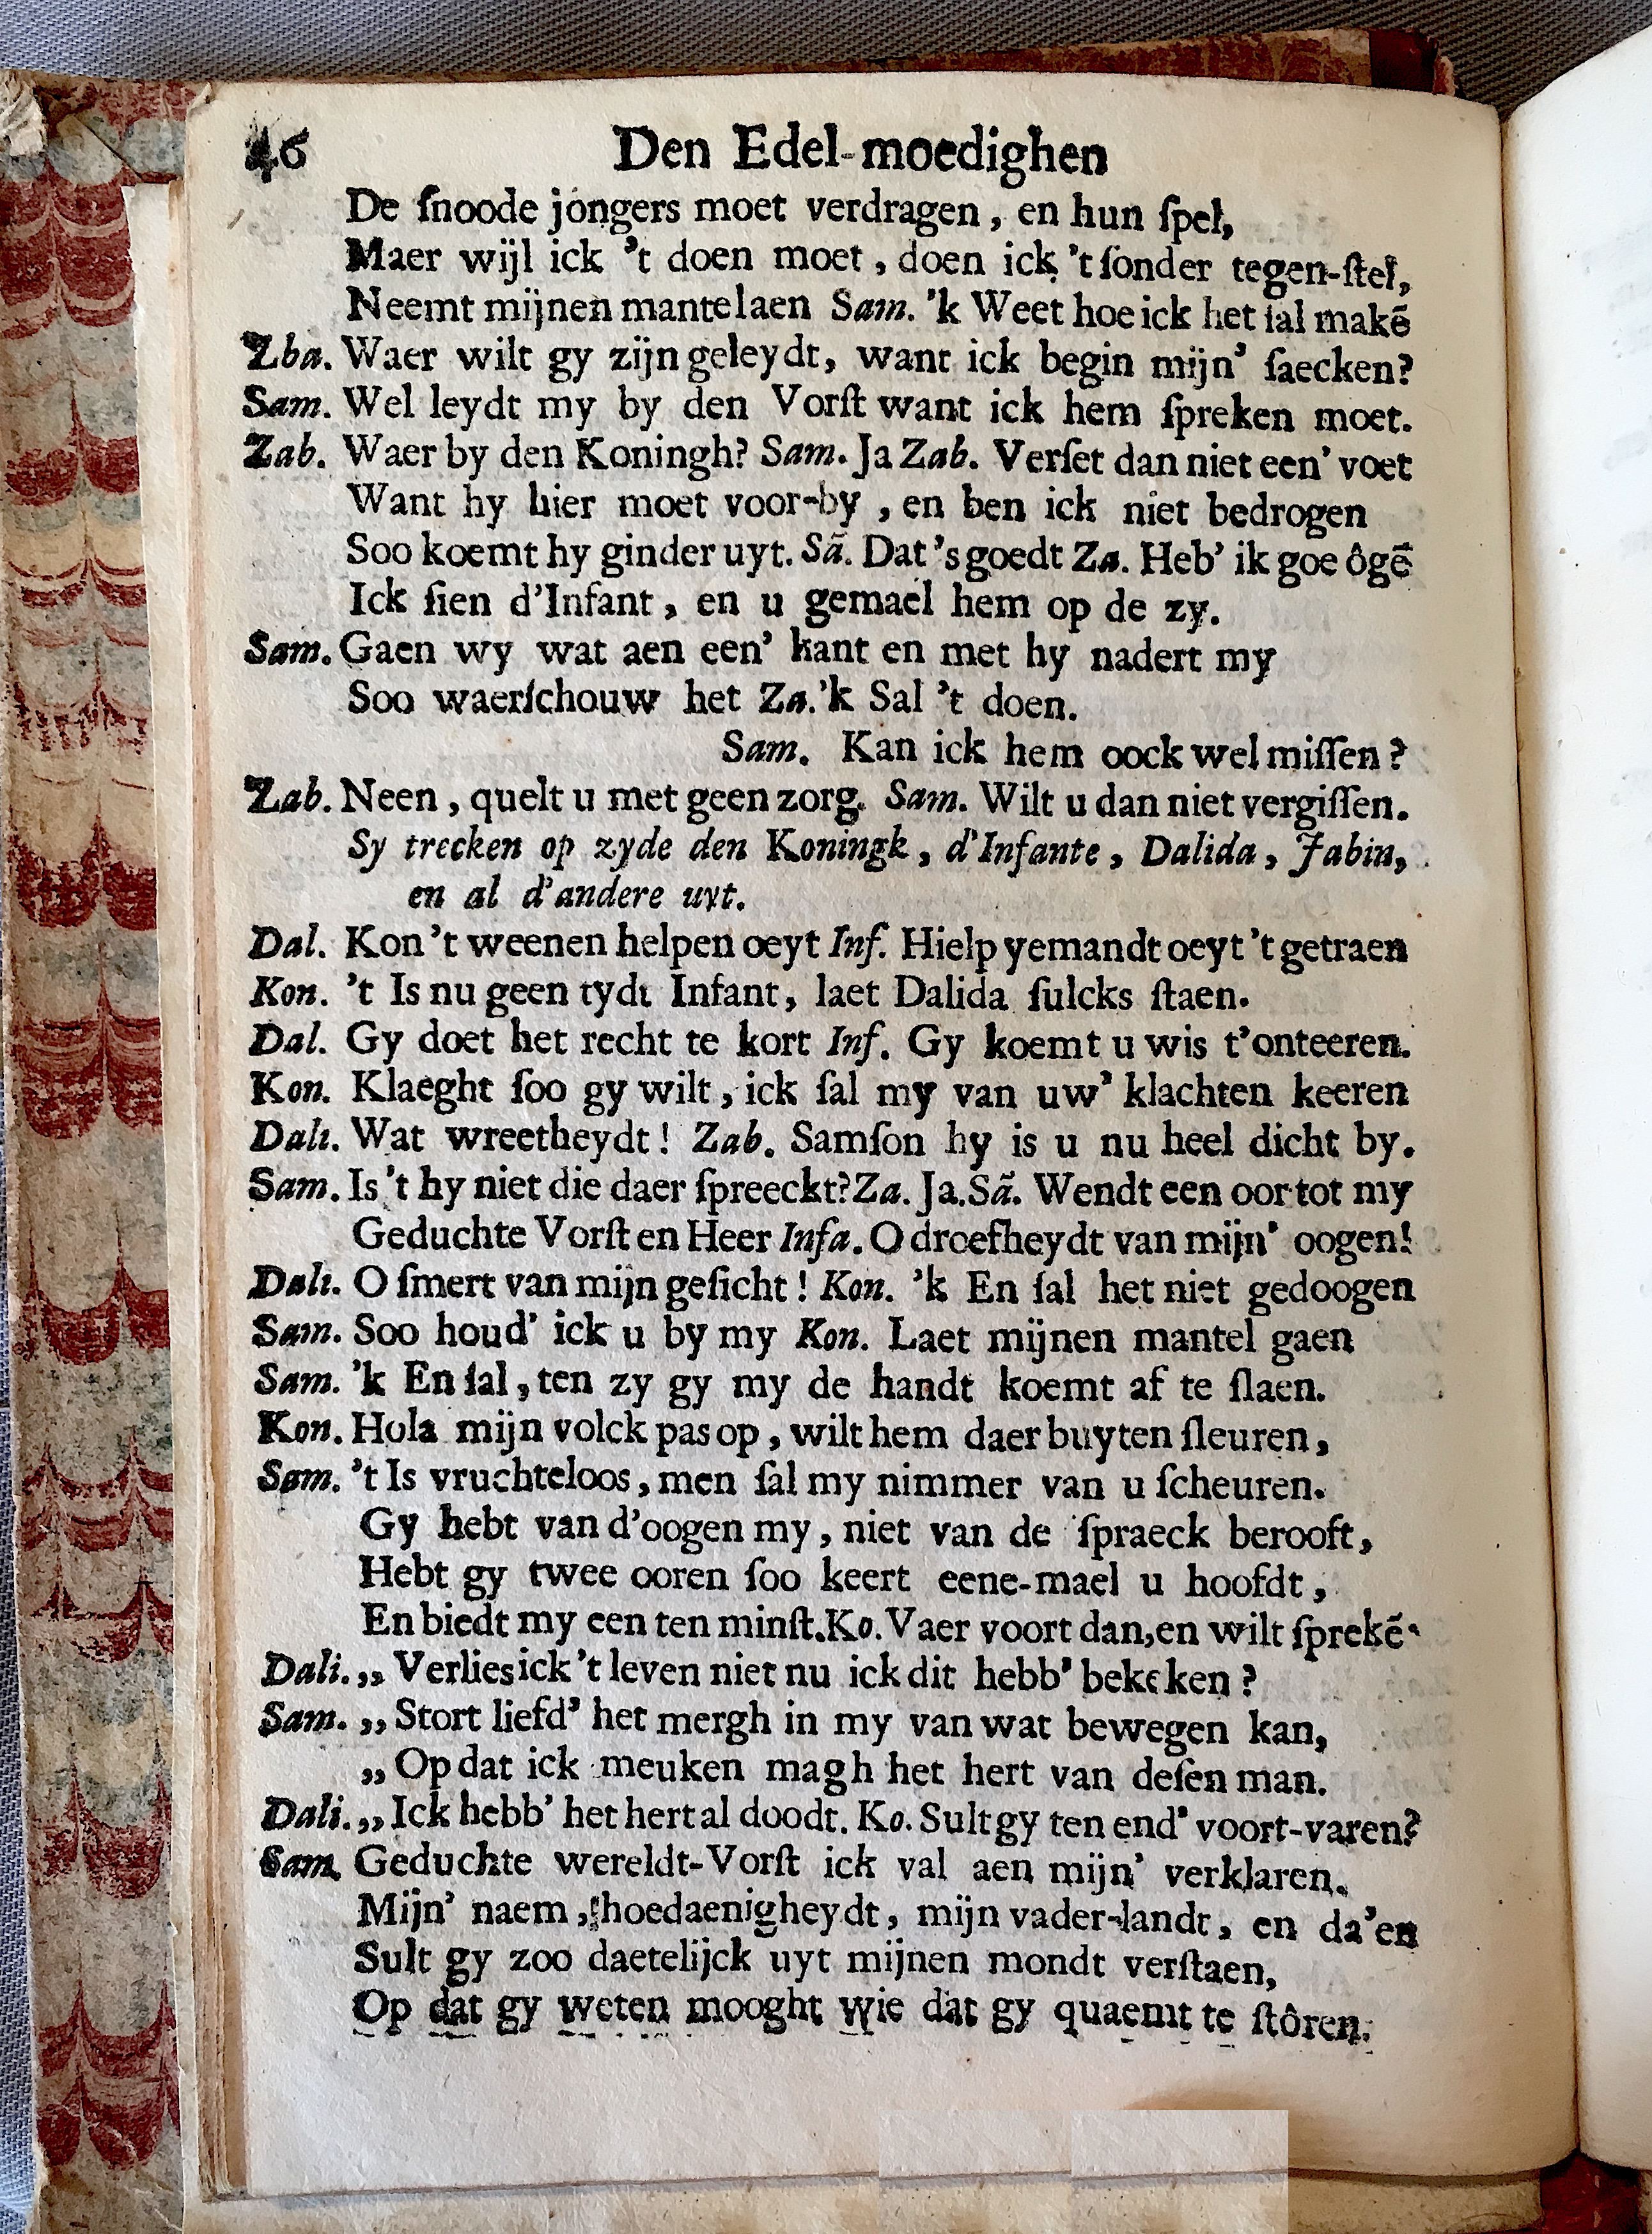 46 Den Edel-moedighen
De ſnoode jongers moet verdragen, en hun ſpel,
Maer wijl ick 't doen moet, doen ick 't ſonder tegen-ſtel,
Neemt mijnen mantel aen Sam. 'k Weet hoe ick het ſal makẽ
Zba. Waer wilt gy zijn geleydt, want ick begin mijn' ſaecken?
Sam. Wel leydt my by den Vorſt want ick hem ſpreken moet.
Zab. Waer by den Koningh? Sam. Ja Zab. Verſet dan niet een' voet
Want hy hier moet voor-by, en ben ick niet bedrogen
Soo koemt hy ginder uyt. Sã. Dat 's goedt Za. Heb' ik goe ôgẽ
Ick ſien d'Infant, en u gemael hem op de zy.
Sam. Gaen wy wat aen een' kant en met hy nadert my
Soo waerſchouw het Za. 'k Sal 't doen.
Sam. Kan ick hem oock wel miſſen?
Zab. Neen, quelt u met geen zorg. Sam. Wilt u dan niet vergiſſen.
Sy trecken op zyde den Koningk, d'Infante, Dalida, Jabin,
en al d'andere uyt.
Dal. Kon 't weenen helpen oeyt Inf. Hielp yemandt oeyt 't getraen
Kon. 't Is nu geen tydt Infant, laet Dalida ſulcks ſtaen.
Dal. Gy doet het recht te kort Inf. Gy koemt u wis t'onteeren.
Kon. Klaeght ſoo gy wilt, ick ſal my van uw' klachten keeren
Dali. Wat wreetheydt! Zab. Samſon hy is u nu heel dicht by.
Sam. Is 't hy niet die daer ſpreeckt? Za. Ja. Sã. Wendt een oor tot my
Geduchte Vorſt en Heer Infa. O droefheydt van mijn' oogen!
Dali. O ſmert van mijn geſicht! Kon. 'k En ſal het niet gedoogen
Sam. Soo houd' ick u by my Kon. Laet mijnen mantel gaen
Sam. 'k En ſal, ten zy gy my de handt koemt af te ſlaen.
Kon. Hola mijn volck pas op, wilt hem daer buyten ſleuren,
Sam. 't Is vruchteloos, men ſal my nimmer van u ſcheuren.
Gy hebt van d'oogen my, niet van de ſpraeck berooft,
Hebt gy twee ooren ſoo keert eene-mael u hoofdt,
En biedt my een ten minſt. Ko. Vaer voort dan, en wilt ſprekẽ
Dali. ,, Verlies ick 't leven niet nu ick dit hebb' bekeken?
Sam. ,, Stort liefd' het mergh in my van wat bewegen kan,
,, Op dat ick meuken magh het hert van deſen man.
Dali. ,, Ick hebb' het hert al doodt. Ko. Sult gy ten end' voort-varen?
Sam. Geduchte wereldt-Vorſt ick val aen mijn' verklaren.
Mijn' naem, hoedaenigheydt, mijn vader-landt, en da'en
Sult gy zoo daetelijck uyt mijnen mondt verſtaen,
Op dat gy weten mooght wie dat gy quaemt te ſtôren.